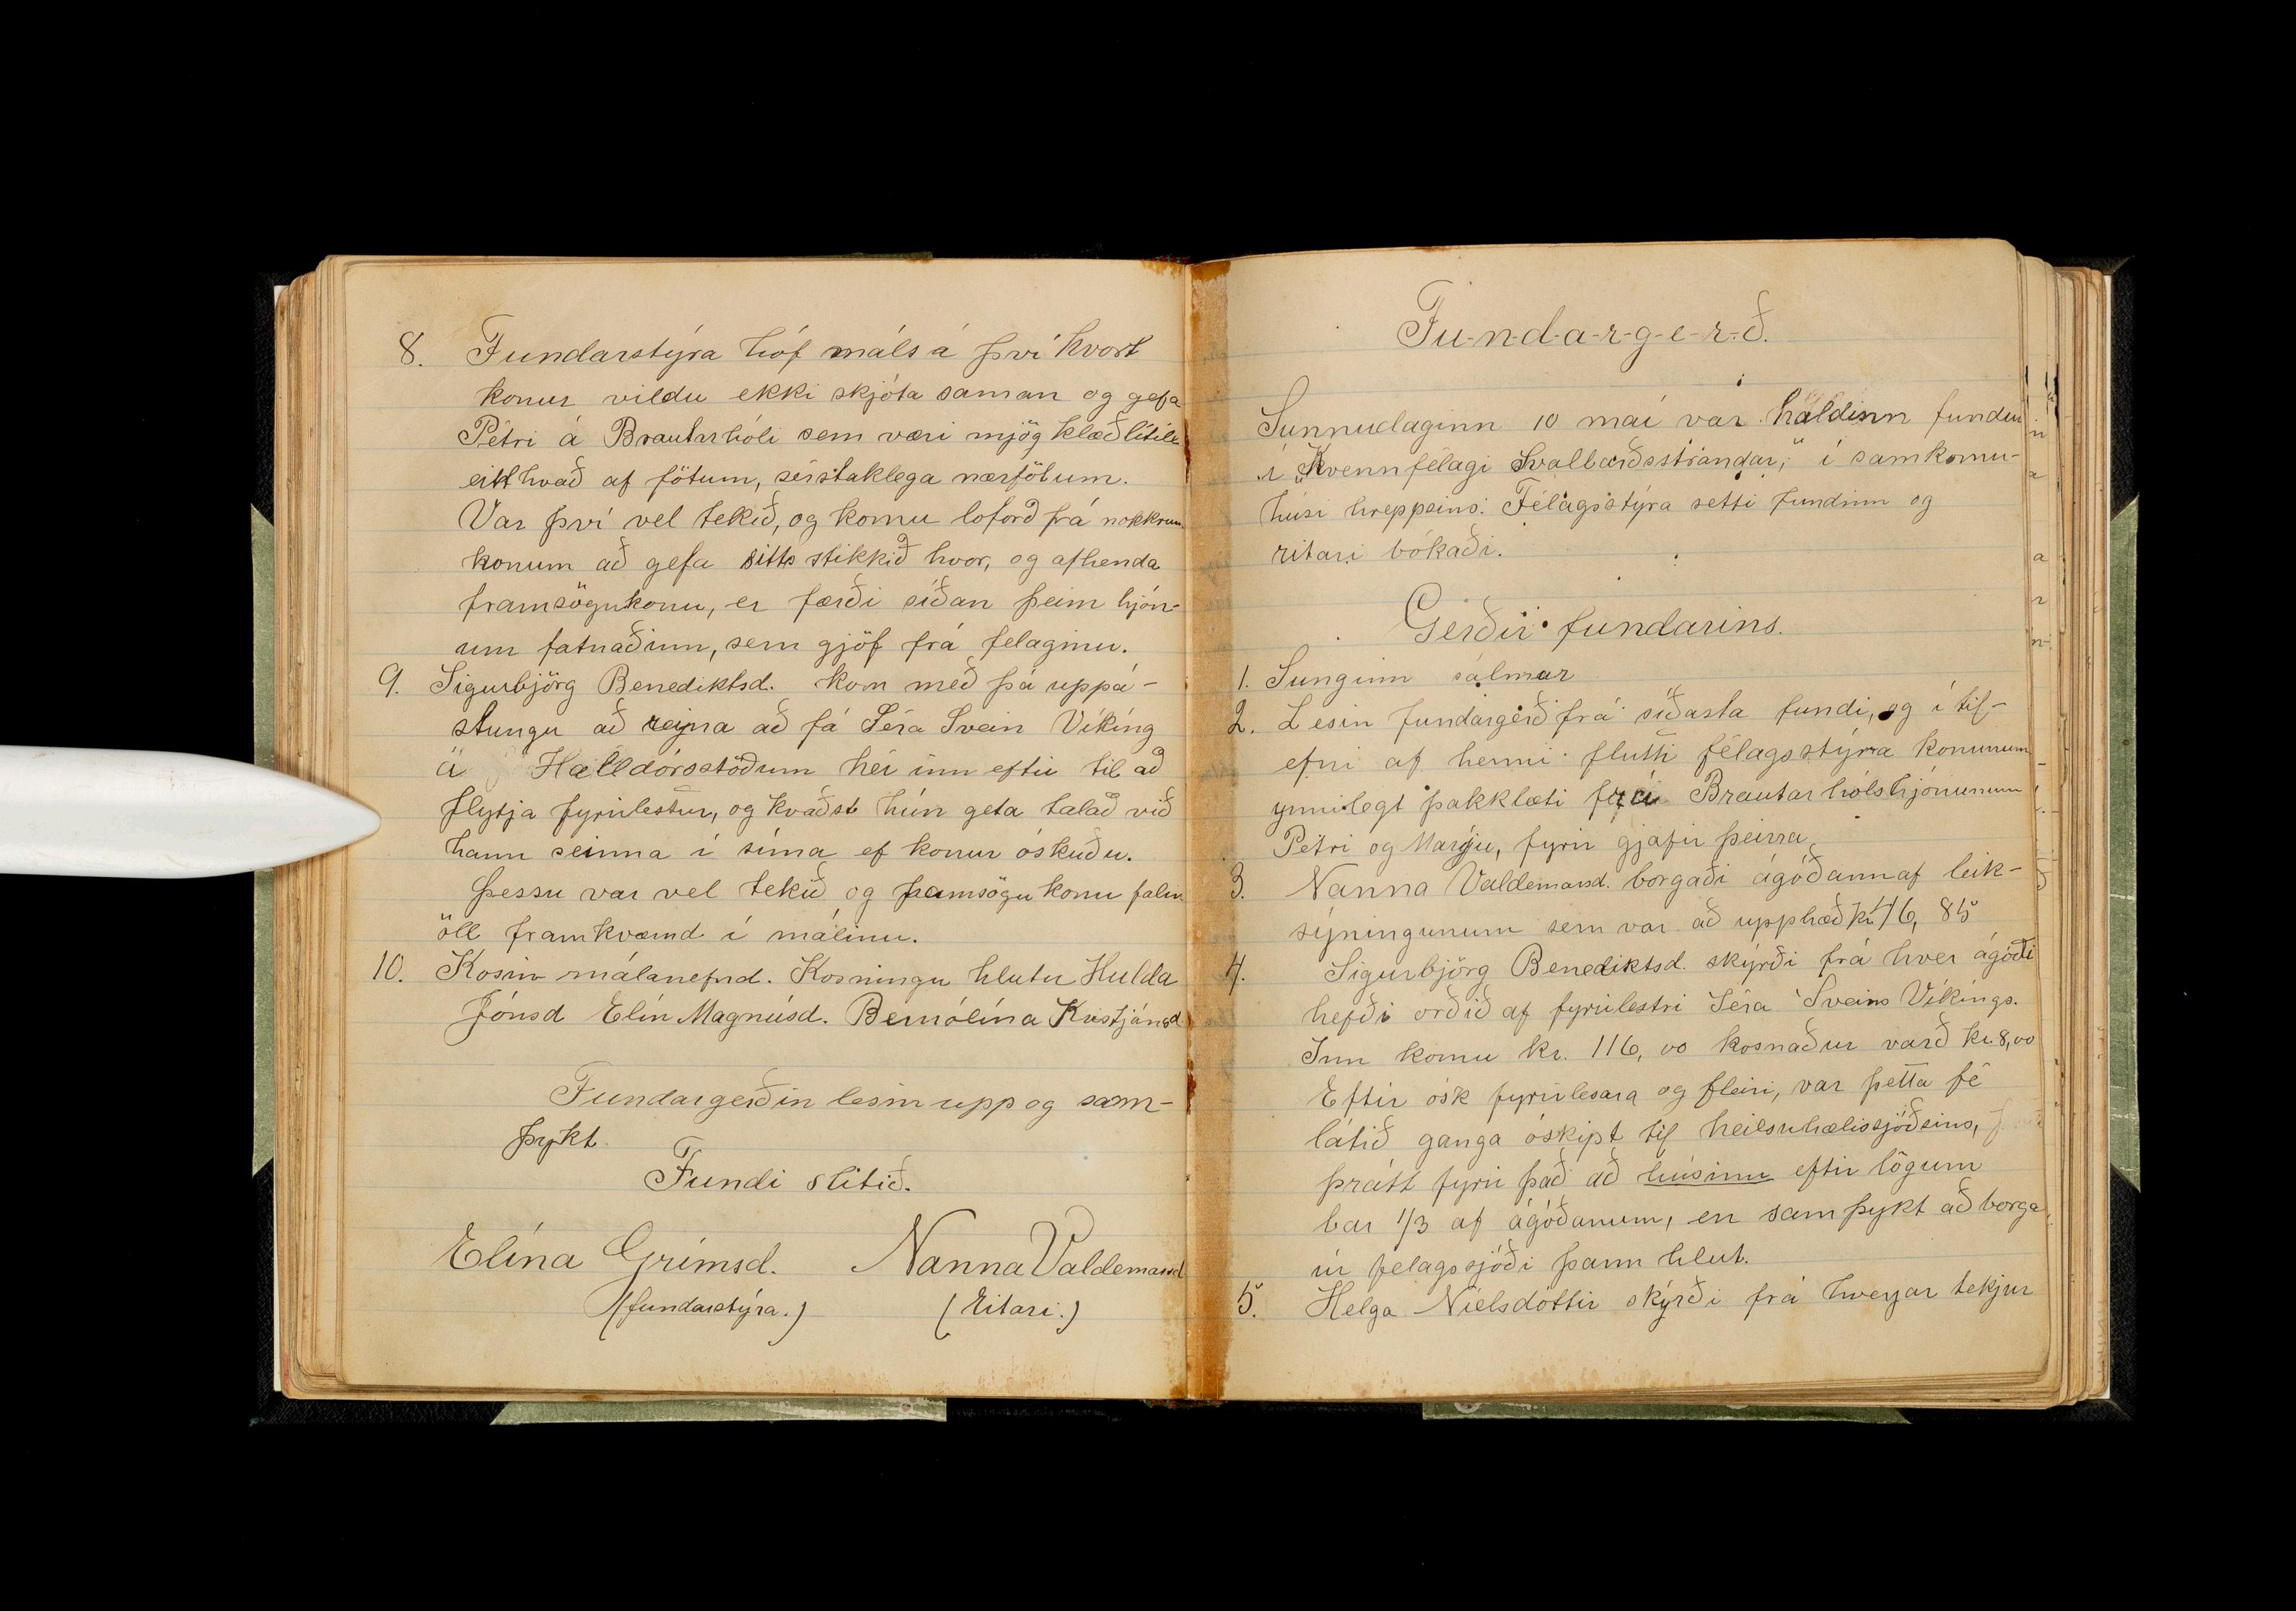 8. Fundarstýra hóf máls á því hvort
konur vildu ekki skjóta saman og gefa
Pétri á Brautarhóli sem væri mjög klæðlítill
eitthvað af fötum, sérstaklega nærfötum.
Var því vel tekið, og komu loforð frá nokkrum
konum að gefa sitts stikkið hvor, og afhenda
framsögukonu, er færði síðan þeim hjón-
um fatnaðinn, sem gjöf frá felaginu.
9. Sigurbjörg Benediktsd. kom með þá uppá-
stungu að reyna að fá Séra Svein Víking
á Halldórsstöðum hér inn eftir til að
flytja fyrirlestur, og kvaðst hún geta talað við
hann seinna í síma ef konur óskuðu.
Þessu var vel tekið og framsögukonu falin
öll framkvæmd í málinu.
10. Kosin málanefnd. Kosningu hlutu Hulda
Jónsd Elín Magnúsd. Bernólína Kristjánsd
Fundargerðin lesin upp og sam-
þykt.
Fundi slitið.
Elína Grímsd. Nanna Valdemarsd
(fundarstýra.) (Ritari.)
Fu-n-d-a-r-g-e-r-ð.
Sunnudaginn 10 maí var haldinn fundur
í „Kvennfélagi Svalbarðsstrandar," í samkomu-
húsi hreppsins. Félagsstýra setti fundinn og
ritari bókaði.
Gerðir fundarins.
1. Sunginn sálmur
2. Lesin fundargerð frá síðasta fundi, og í til-
efni af henni flutti félagsstýra konunum
ynnilegt þakklæti frá Brautarhólshjónunum
Petri og Maríu, fyrir gjafir þeirra
3. Nanna Valdemarsd. borgaði ágóðann af leik-
sýningunum sem var að upphæð kr. 46, 85
4. Sigurbjörg Benediktsd. skýrði frá hver ágóði
hefði orðið af fyrirlestri Séra Sveins Víkings.
Inn komu kr. 116, 00 kosnaður varð kr. 8,00
Eftir ósk fyrirlesara og fleiri, var þetta fé
látið ganga óskipt til heilsuhælissjóðsins,
þrátt fyrir það að húsinu eftir lögum
bar 1/3 af ágóðanum, en samþykt að borga
úr felagssjóði þann hlut.
5. Helga Níelsdóttir skýrði frá hverjar tekjur